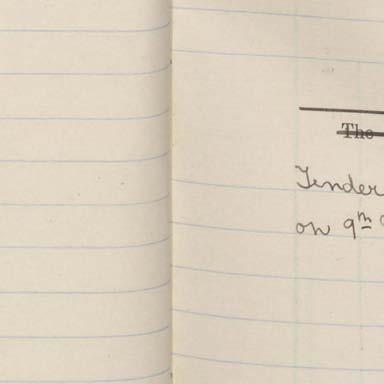 The
Tender
on 9th